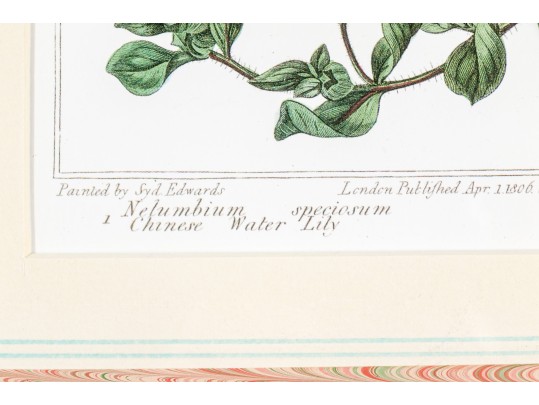 Painted by Syd. Edwards
London Publiſhed Apr. 1. 1806.
1 Nelumbium speciosum
Chinese Water Lily